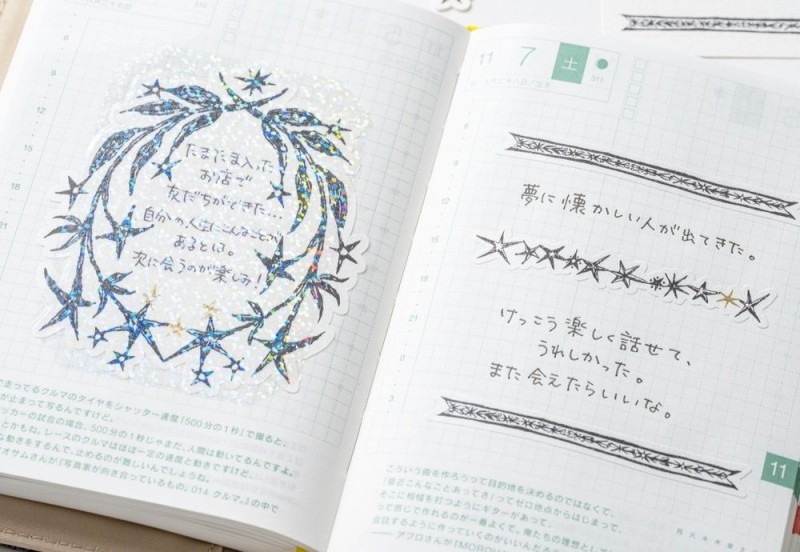 たまたま入った
お店で
友だちができた…
自分の人生にこんなことが
あるとは。
次に会うのが楽しみ!
走ってるクルマのタイヤをシャッター速度「500分の1秒」で撮ると、
が止まって写るんですけど、
ッカーの試合の場合、500分の1秒じゃまだ、人間は動いてるんですよ。
とかもね。レースのクルマはほぼ一定の速度と動きですけど、
な動きをするんで、止めるのが難しいんでしょうね。
オサムさんが『写真家が向き合っているもの。014 クルマ。』の中で
11 7 土
311
夢に懐かしい人が出てきた。
けっこう楽しく話せて、
うれしかった。
また会えたらいいな。
11
こういう曲を作ろうって目的地を決めるのではなくて、
「最近こんなことあってさ」ってゼロ地点からはじまって、
そこに相槌を打つようにギターがあって。
って感じで作れるのが一番よくて。俺たちの理想と
会話するように作っていくのがいいんだ